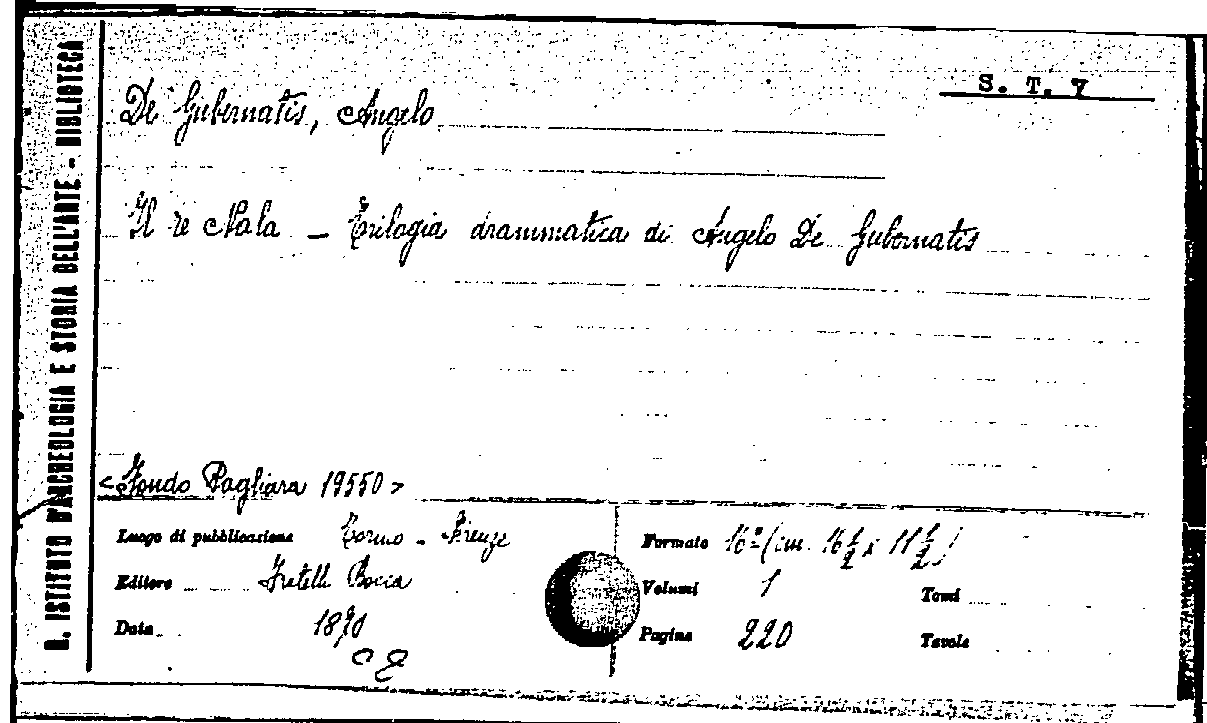 S. T. 7
De Gubernatis, Angelo
Il re Nala – Trilogia drammatica di Angelo De Gubernatis
<Fondo Pagliara 19550>
Luogo di pubblicazione Torino - Firenze
Editore Fratelli Bocca
Data 1870
Formato 16º (cm. 16 1/2 x 11 1/2)
Volumi 1 Tomi
Pagine 220 Tavole
R. ISTITUTO D'ARCHEOLOGIA E STORIA DELL'ARTE - BIBLIOTECA